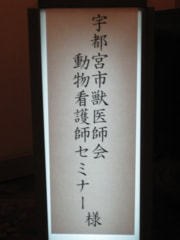 宇都宮市獣医師会
動物看護師セミナー様